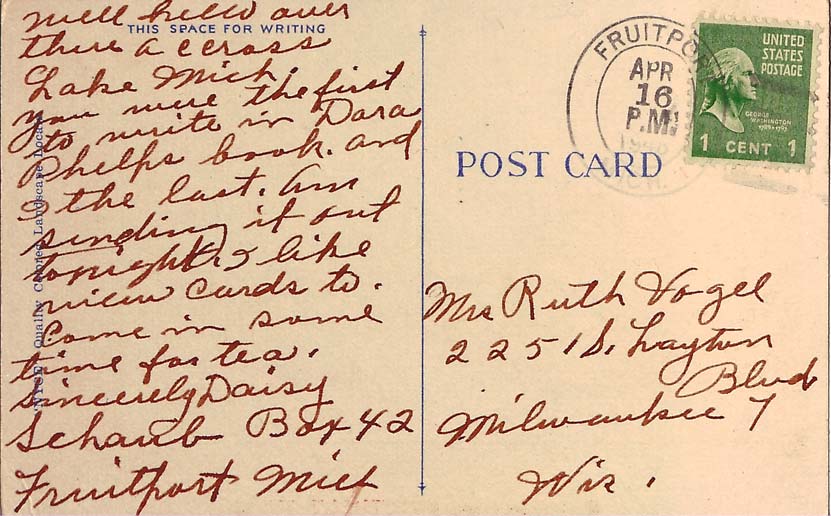 THIS SPACE FOR WRITING
well hello over
there accross
Lake Mich.
you were the first
to write in Dora
Phelps book. and
I the last. am
sending it out
tonight. I like
view cards to.
Come in some
time for tea.
Sincerely Daisy
Schaub Box 42
Fruitport Mich
Quality Colored Landscape
POST CARD
FRUITPORT
APR
16
P.M.
UNITED
STATES
POSTAGE
GEORGE
WASHINGTON
1789-1797
1 CENT 1
Mrs Ruth Vogel
2251 S. Layton
Blvd
Milwaukee 7
Wis.